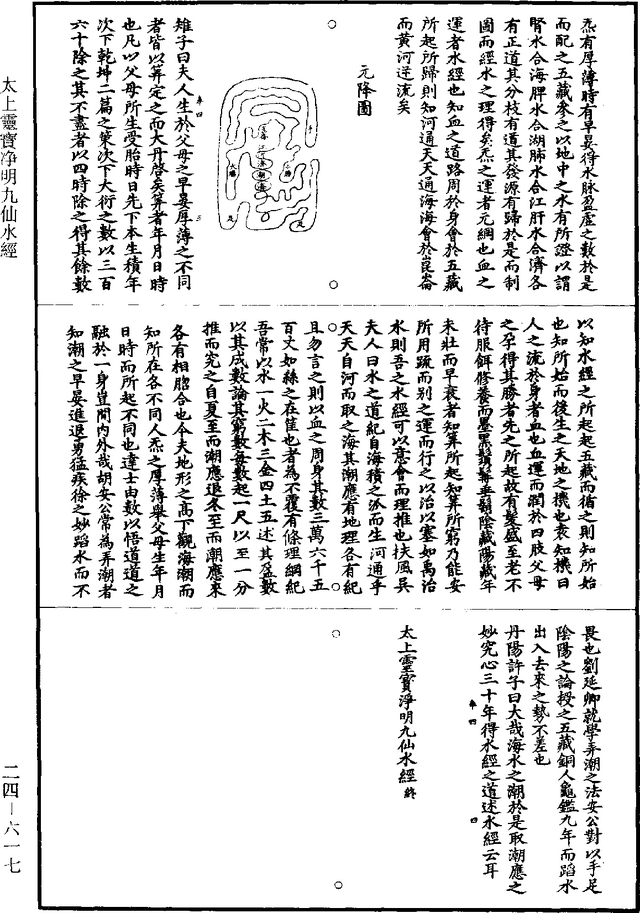 太上靈寶淨明九仙水經
炁有厚薄時有早晏得水脉盈虛之數於是
而配之五藏參之以地中之水有所證以謂
腎水合海脾水合湖肺水合江肝水合濟各
有正道其分枝有道其發源有歸於是而制
圖而經水之理得矣炁之運者元綱也血之
運者水經也知血之道路周於身會於五藏
所起所歸則知河通天天通海海會於崑崙
而黃河逆流矣
元降圖
雉子曰夫人生於父母之早晏厚薄之不同
者皆以筭定之而大丹啓矣筭者年月日時
也凡以父母所生受胎時日先下本生積年
次下乾坤二篇之策次下大衍之數以三百
六十除之其不盡者以四時除之得其餘數
以知水經之所起起五藏而循之則知所始
也知所始而後生之天地之機也衰知機日
人之流於身者血也血運而潤於四肢父母
之孕得其勝者先之所起故有髮盛至老不
待服餌修養而墨黑鬚髯垂鬍陰藏陽藏年
未壯而早衰者知筭所起知筭所窮乃能安
所用疏而别之運而行之以治以塞如禹治
水則吾之水經可以意會而理推也扶風吳
夫人曰水之道紀自海積之派而生河通乎
天天自河而取之海其潮應有地理各有紀
且勿言之則以血之周身其數三萬六千五
百丈如絲之在筐也者為不覆有條理綱紀
吾常以水一火二木三金四土五述其盈數
以其成數論其窮數每數起一尺以至一分
推而究之自夏至而潮應退冬至而潮應來
各有相脗合也今夫地形之高下觀海潮而
知所在各不同人炁之厚薄舉父母生年月
日時而所起不同也達士由數以悟道道之
融於一身豈間內外哉胡安公常為弄潮者
知潮之早晏進退勇猛疾徐之妙蹈水而不
畏也劉延卿就學弄潮之法安公對以手足
陰陽之論授之五藏銅人龜鑑九年而蹈水
出入去來之勢不差也
丹陽許子曰大哉海水之潮於是取潮應之
妙究心三十年得水經之道述水經云耳
太上靈寶淨明九仙水經終
二四—六一七